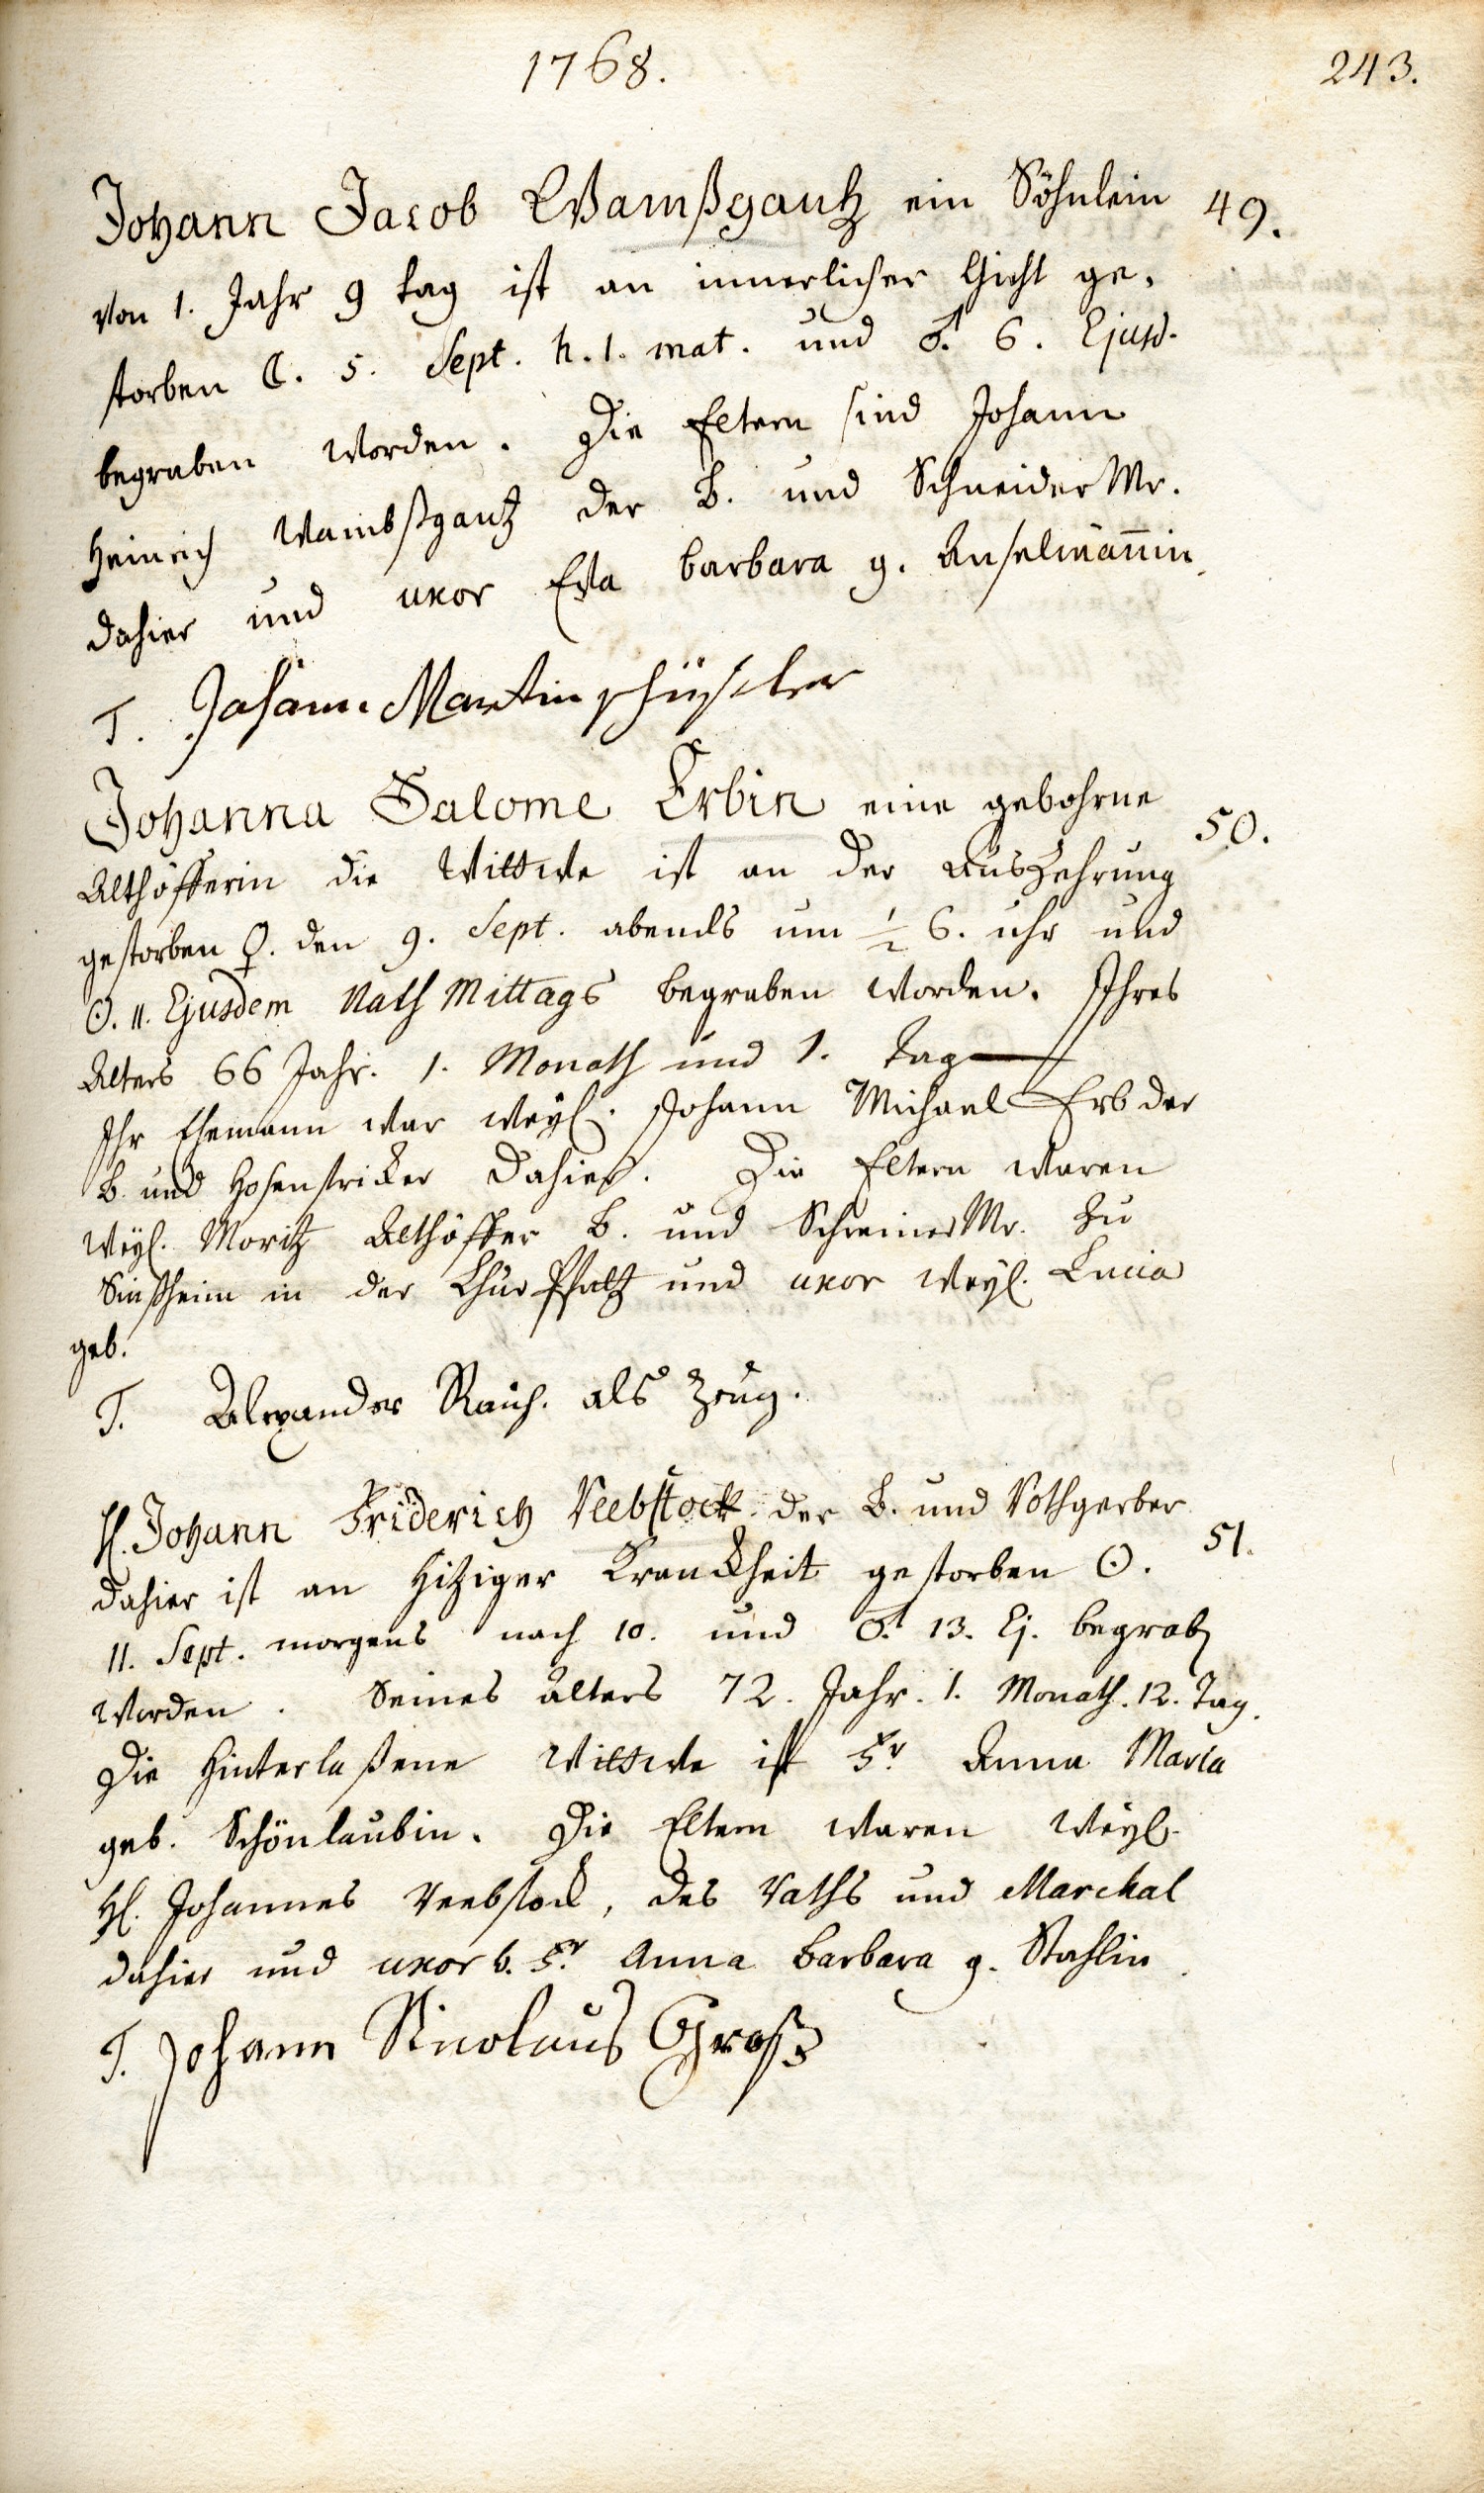 1768.
243.
Johann Jacob Wamßgantz ein Söhnlein 49.
von 1. Jahr 9 tag ist an innerlicher Gicht ge-
storben ☾. 5. Sept. h. 1. mat. und ♂. 6. Ejusd.
begraben worden. Die Eltern sind Johann
Heinrich Wambßgantz der B. und Schneider Mr.
dahier und uxor Eva Barbara g. Anselmännin.
T. Johann Martin
Johanna Salome Erbin eine gebohrne 50.
Althöfferin die Wittwe ist an der Auszehrung
gestorben ♀. den 9. Sept. abends um ½ 6. uhr und
☉. 11. Ejusdem Nach Mittags begraben worden. Ihres
Alters 66 Jahr. 1. Monath und 1. Tag
Ihr Ehemann war weyl. Johann Michael Erb der
B. und Hosenstricker dahier. Die Eltern waren
weyl. Moritz Althöffer B. und Schreiner Mr. zu
Sinßheim in der Chur Pfaltz und uxor weyl. Lucia
geb.
T. Alexander Rauch. als Zeug.
H. Johann Friderich Reebstock der B. und Rothgerber 51.
dahier ist an hitziger Kranckheit gestorben ☉.
11. Sept. morgens nach 10. und ♂. 13. Ej. begraben
worden. Seines alters 72. Jahr. 1. Monath. 12. Tag.
Die Hinterlaßene Wittwe ist Fr. Anna Maria
geb. Schönlaubin. Die Eltern waren weyl.
H. Johannes Reebstock, des Raths und Marchal
dahier und uxor b. Fr. Anna Barbara g. Stahlin.
T. Johann Nicolaus Groß